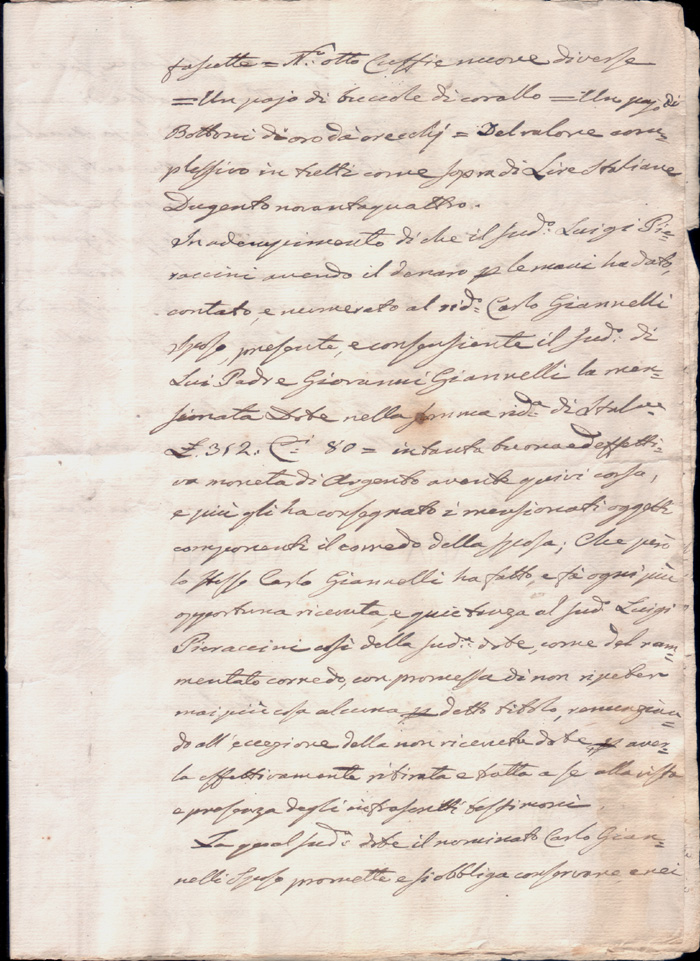 fascette = N.° otto Cuffie nuove diverse
= Un pajo di buccole di corallo = Un pajo di
Bottoni di oro da orecchj = Del valore com=
plessivo in tutti come sopra di Lire Italiane
Dugento novantaquattro.
In adempimento di che il sud.° Luigi Pie=
raccini avendo il denaro p le mani ha dato,
contato, e numerato al rid.° Carlo Giannelli
sposo, presente, e consensiente il sud.° di
Lui Padre Giovanni Giannelli la men=
sionata Dote nella somma rid.a di Ital.ne
£. 352. C.i 80 = in tanta buona ed effetti=
va moneta di Argento avente quivi corso,
e più gli ha consegnato i mensionati oggetti
componenti il corredo della sposa; Che però
lo stesso Carlo Giannelli ha fatto e fà ogni più
opportuna ricevuta, e quietanza al sud.° Luigi
Pieraccini così della sud.a dote, come del ram=
mentato corredo, con promessa di non ripeter
mai più cosa alcuna p detto titolo, renunzian=
do all'eccezione della non ricevuta dote, p aver=
la effettivamente ritirata e tratta a se alla vista
e presenza degli infrascritti testimoni.
La qual sud.a dote il nominato Carlo Gian=
nelli Sposo promette e si obbliga conservare, e nei